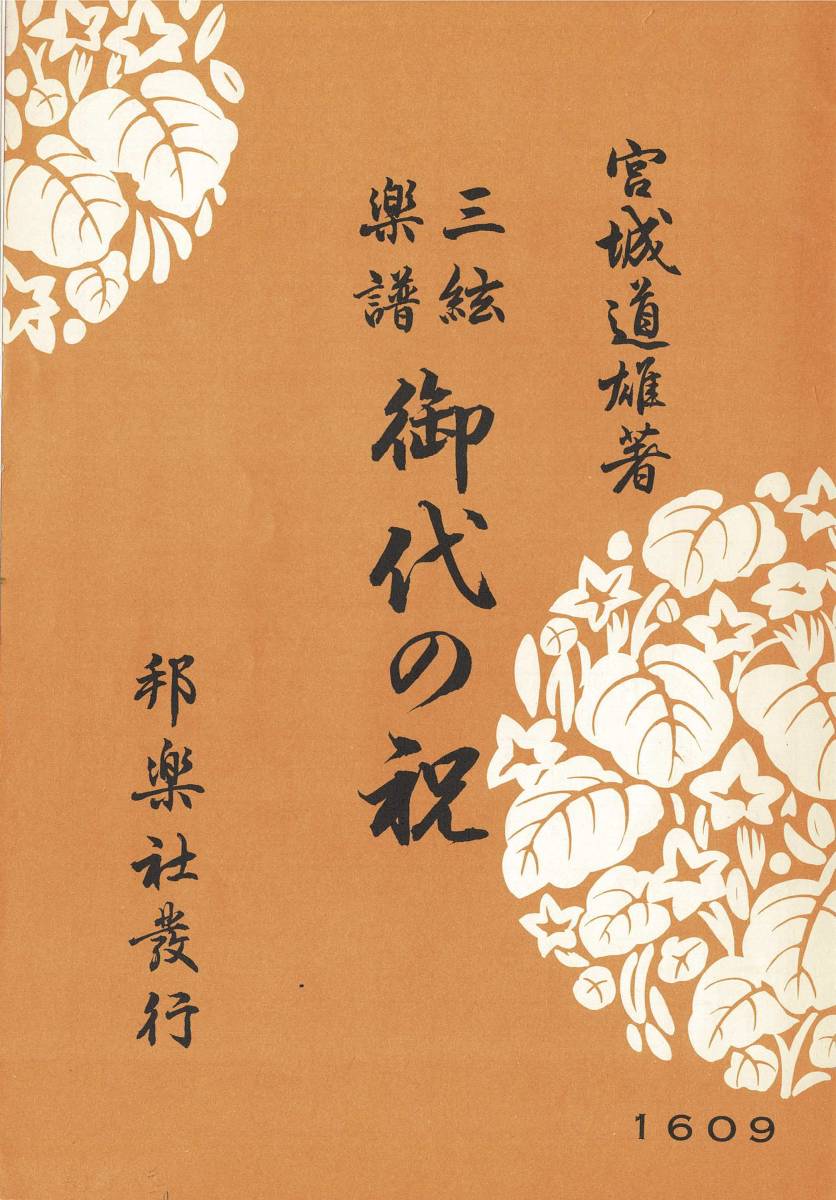 宮城道雄著
三絃
楽譜
御代の祝
邦楽社發行
1609